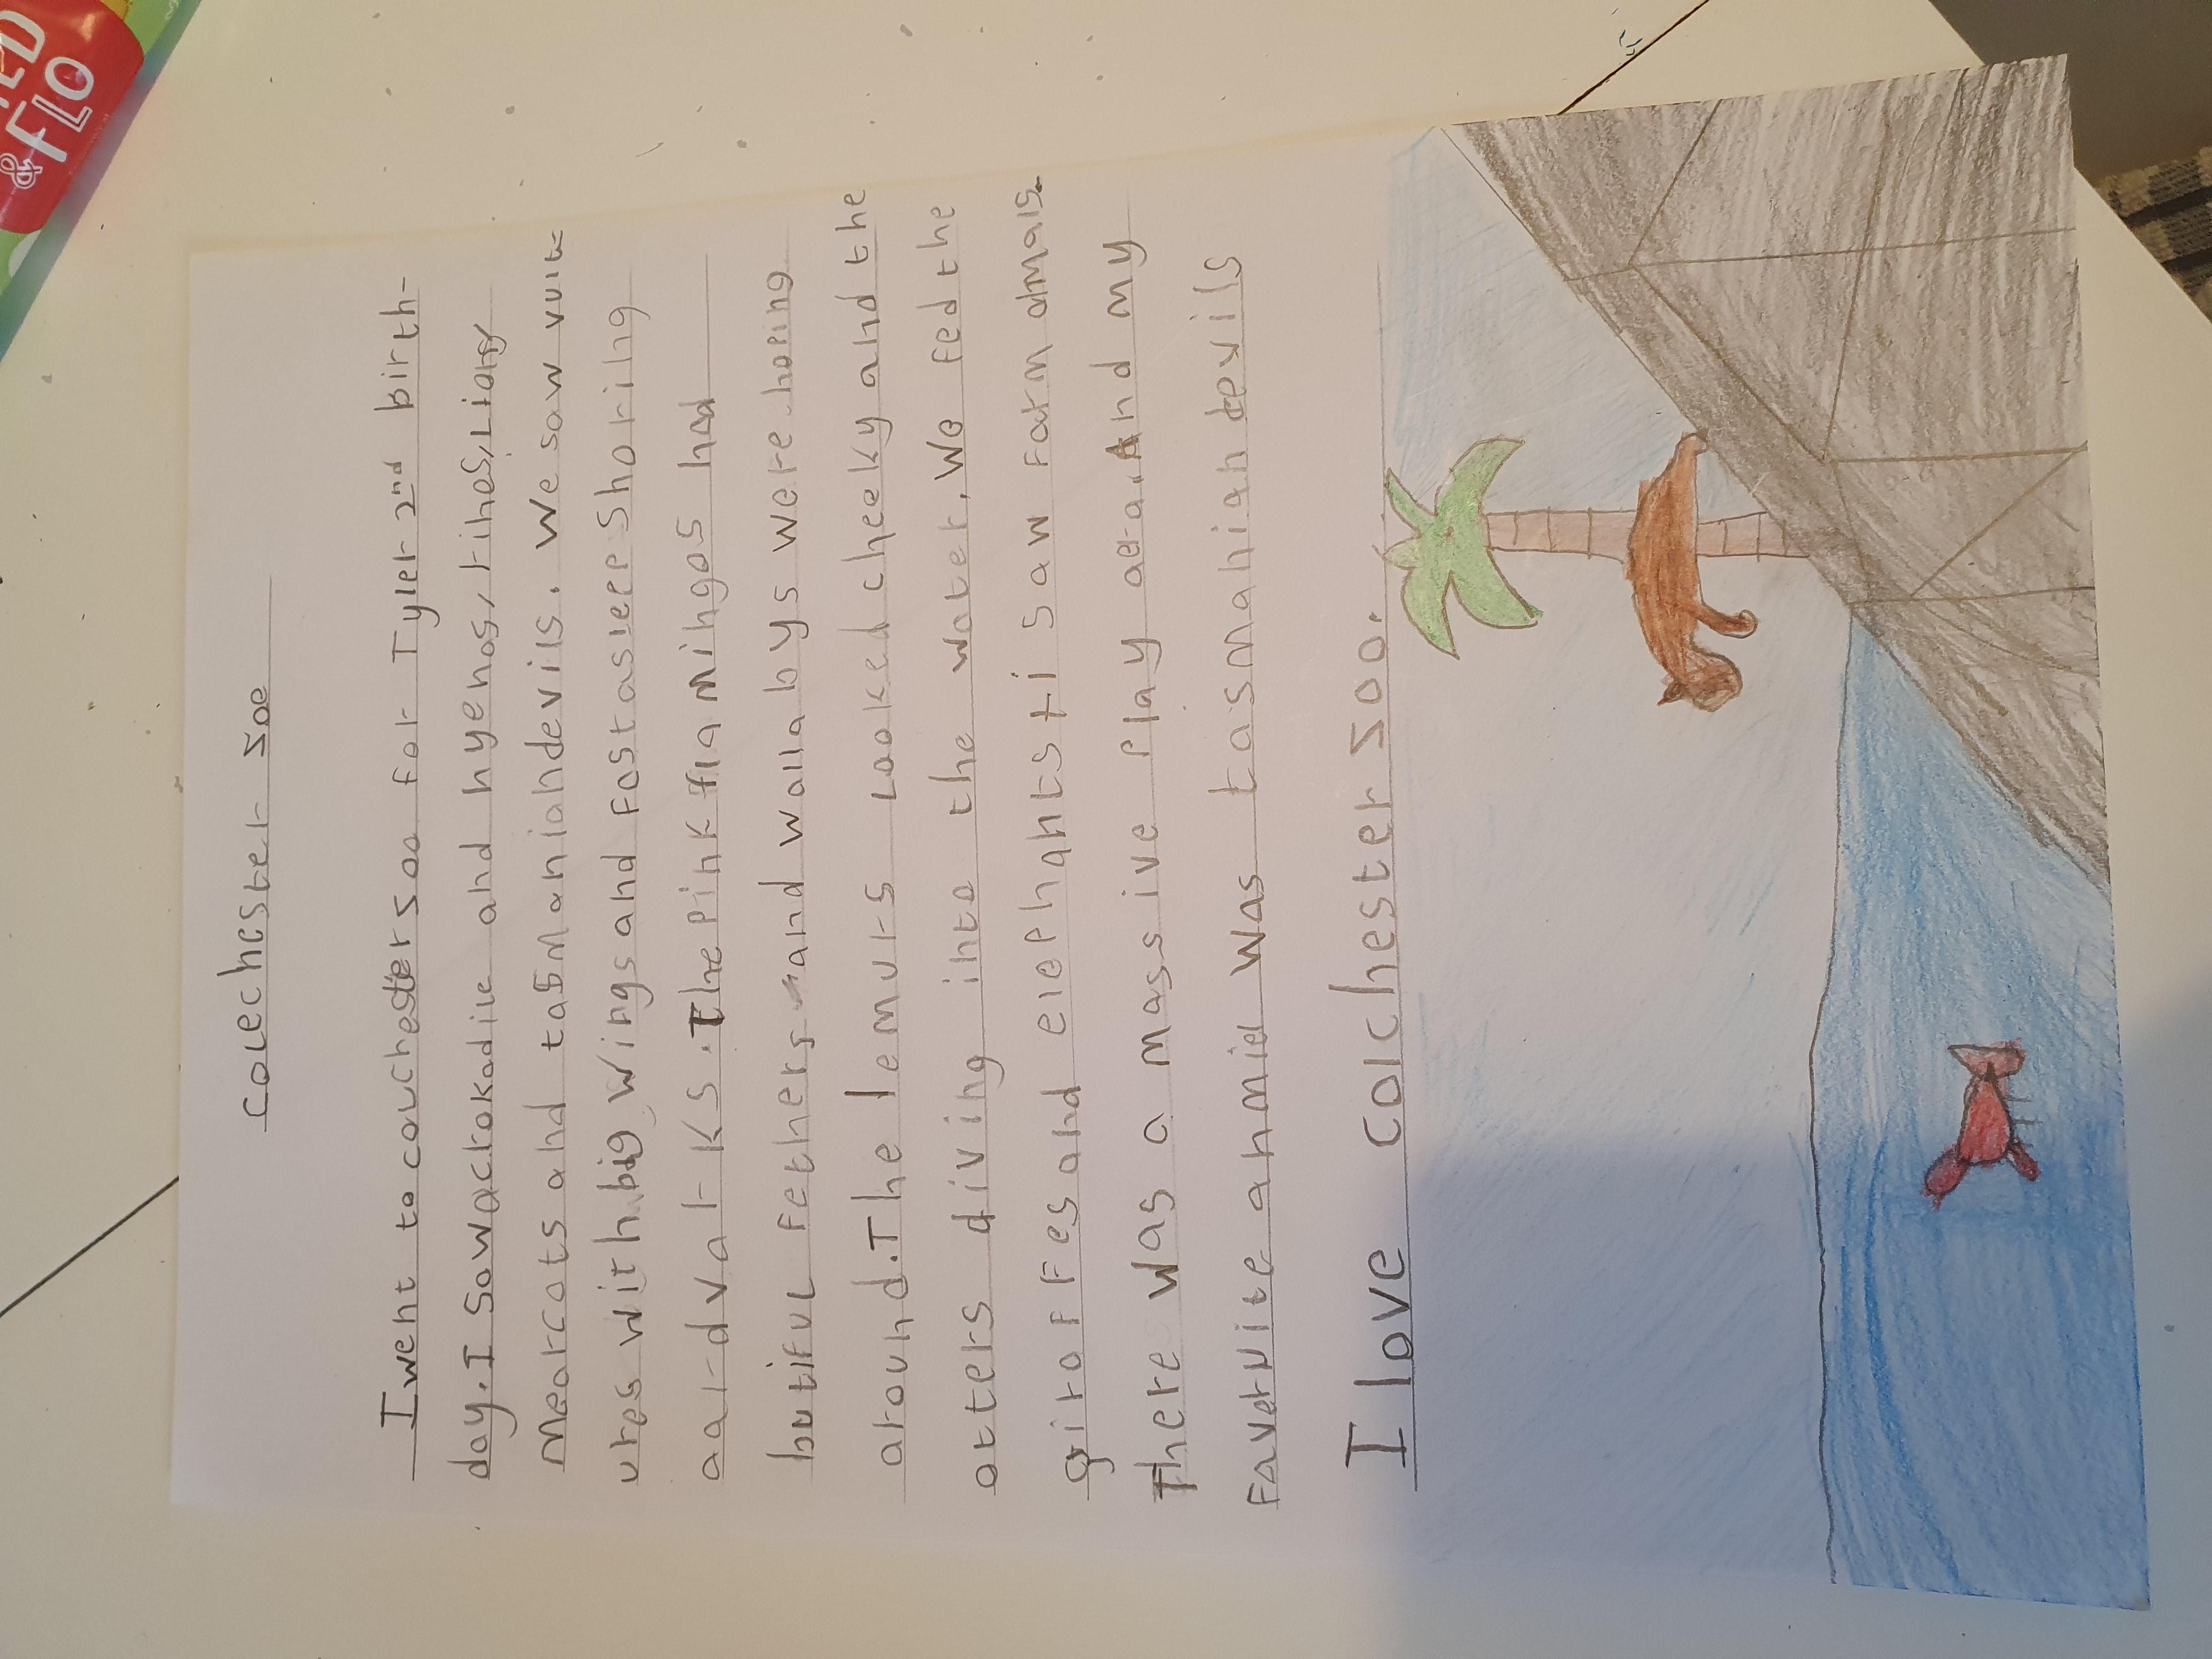 colechester zoe
I went to couchester zoo for Tyler 2nd birth-
day. I saw a crokadile and hyenas, rihos, Lions
Mearcats and tasmaniandevils. We saw vult-
ures with big wings and fast asleep shoring
aardvarks. The pink flamingos had
butiful fethers and wallabys were hoping
around. The lemurs Looked cheeky and the
otters diving into the water. We fed the
giraffes and elephants I saw farm anmals.
There was a massive play aera. And my
faverite anmiel was tasmanian devils
I love colchester zoo.
&FLO